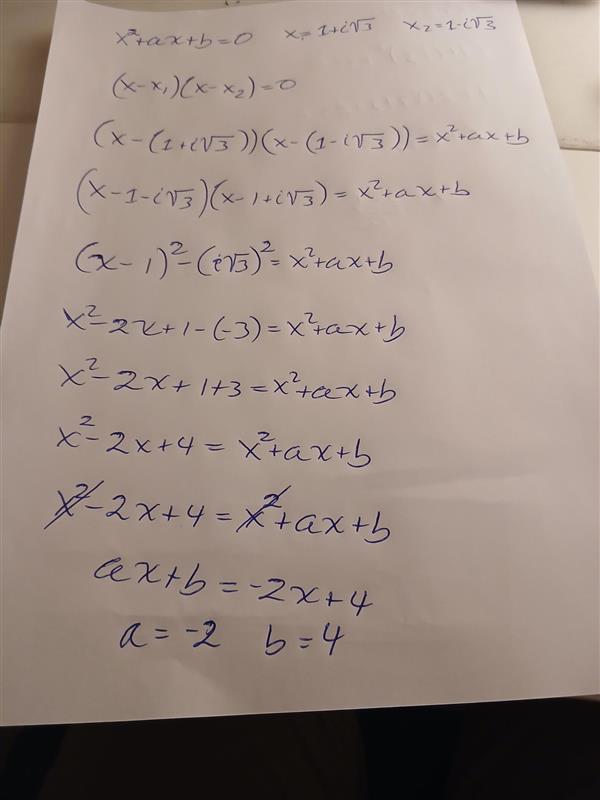 x²+ax+b=0 x₁=1+i√3 x₂=1-i√3
(x-x₁)(x-x₂)=0
(x-(1+i√3))(x-(1-i√3))=x²+ax+b
(x-1-i√3)(x-1+i√3)=x²+ax+b
(x-1)²-(i√3)²=x²+ax+b
x²-2x+1-(-3)=x²+ax+b
x²-2x+1+3=x²+ax+b
x²-2x+4=x²+ax+b
x²-2x+4=x²+ax+b
ax+b=-2x+4
a=-2 b=4